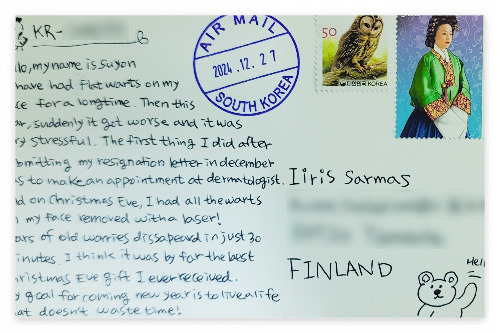 KR-
lo, my name is Suyon
have had flat warts on my
ce for a longtime. Then this
ar, suddenly it got worse and it was
ry stressful. The first thing I did after
bmitting my resignation letter in december
s to make an appointment at dermatologist.
d on Christmas Eve, I had all the warts
n my face removed with a laser!
ars of old worries dissapeard in just 30
inutes. I think it was by for the best
hristmas Eve gift I ever received.
y goal for coming new year is to live a life
at doesn't waste time!
AIR MAIL
2024.12.27
SOUTH KOREA
50
대한민국 KOREA
Iiris Sarmas
FINLAND
Hello